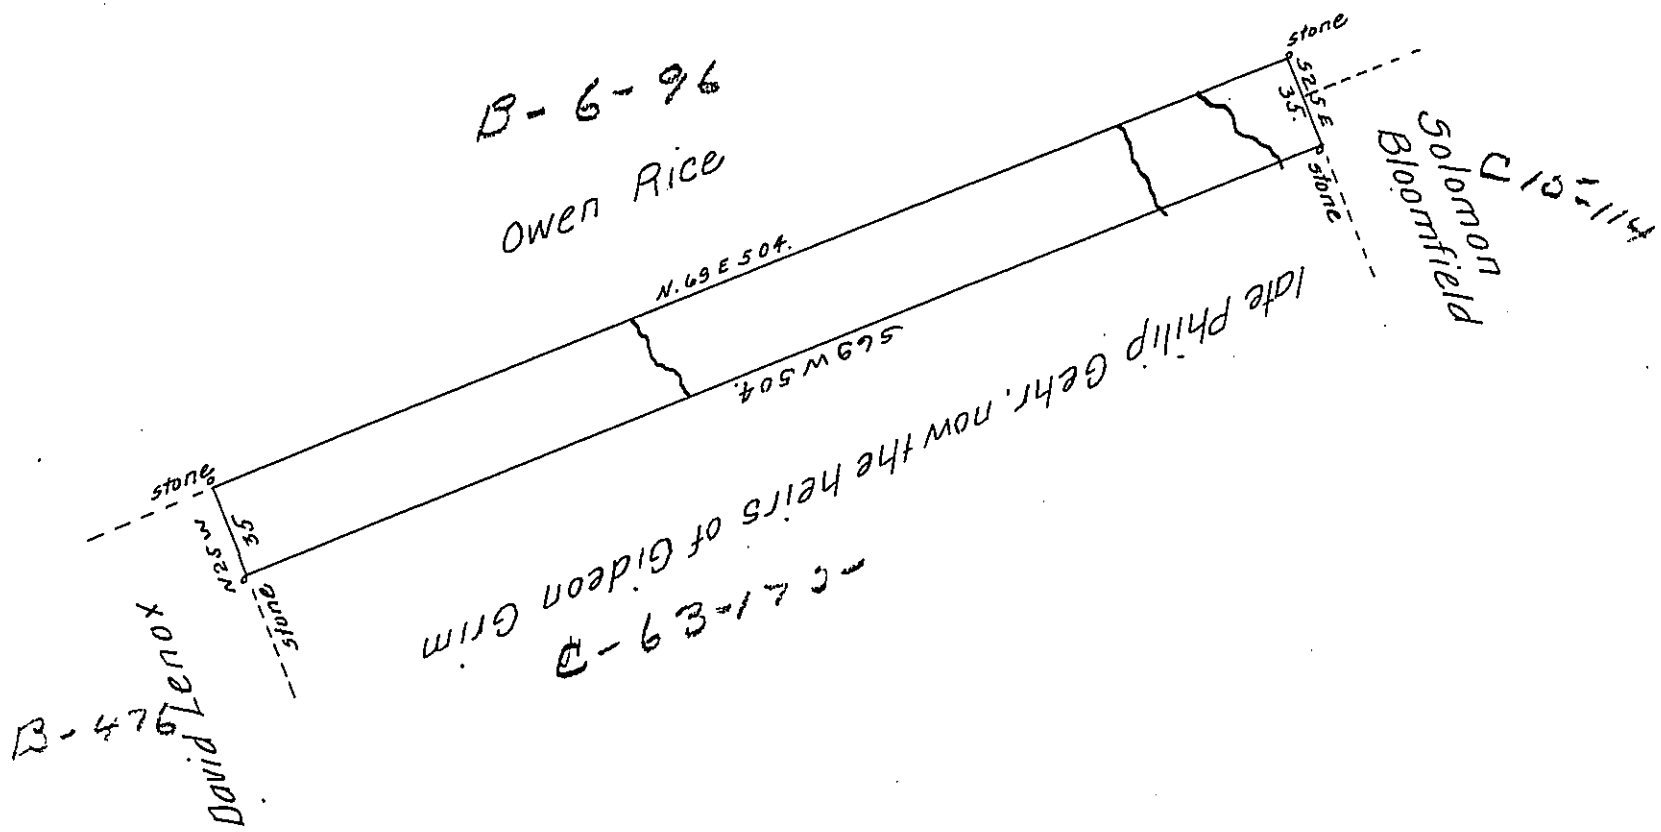 stone
B-6-96
Owen Rice
S 25 E
35.
stone
Solomon
Bloomfield
N. 69 E 504.
S 69 W 504.
late Philip Gehr, now the heirs of Gideon Grim
stone
N 25 W
35
stone
David Lenox
B-476